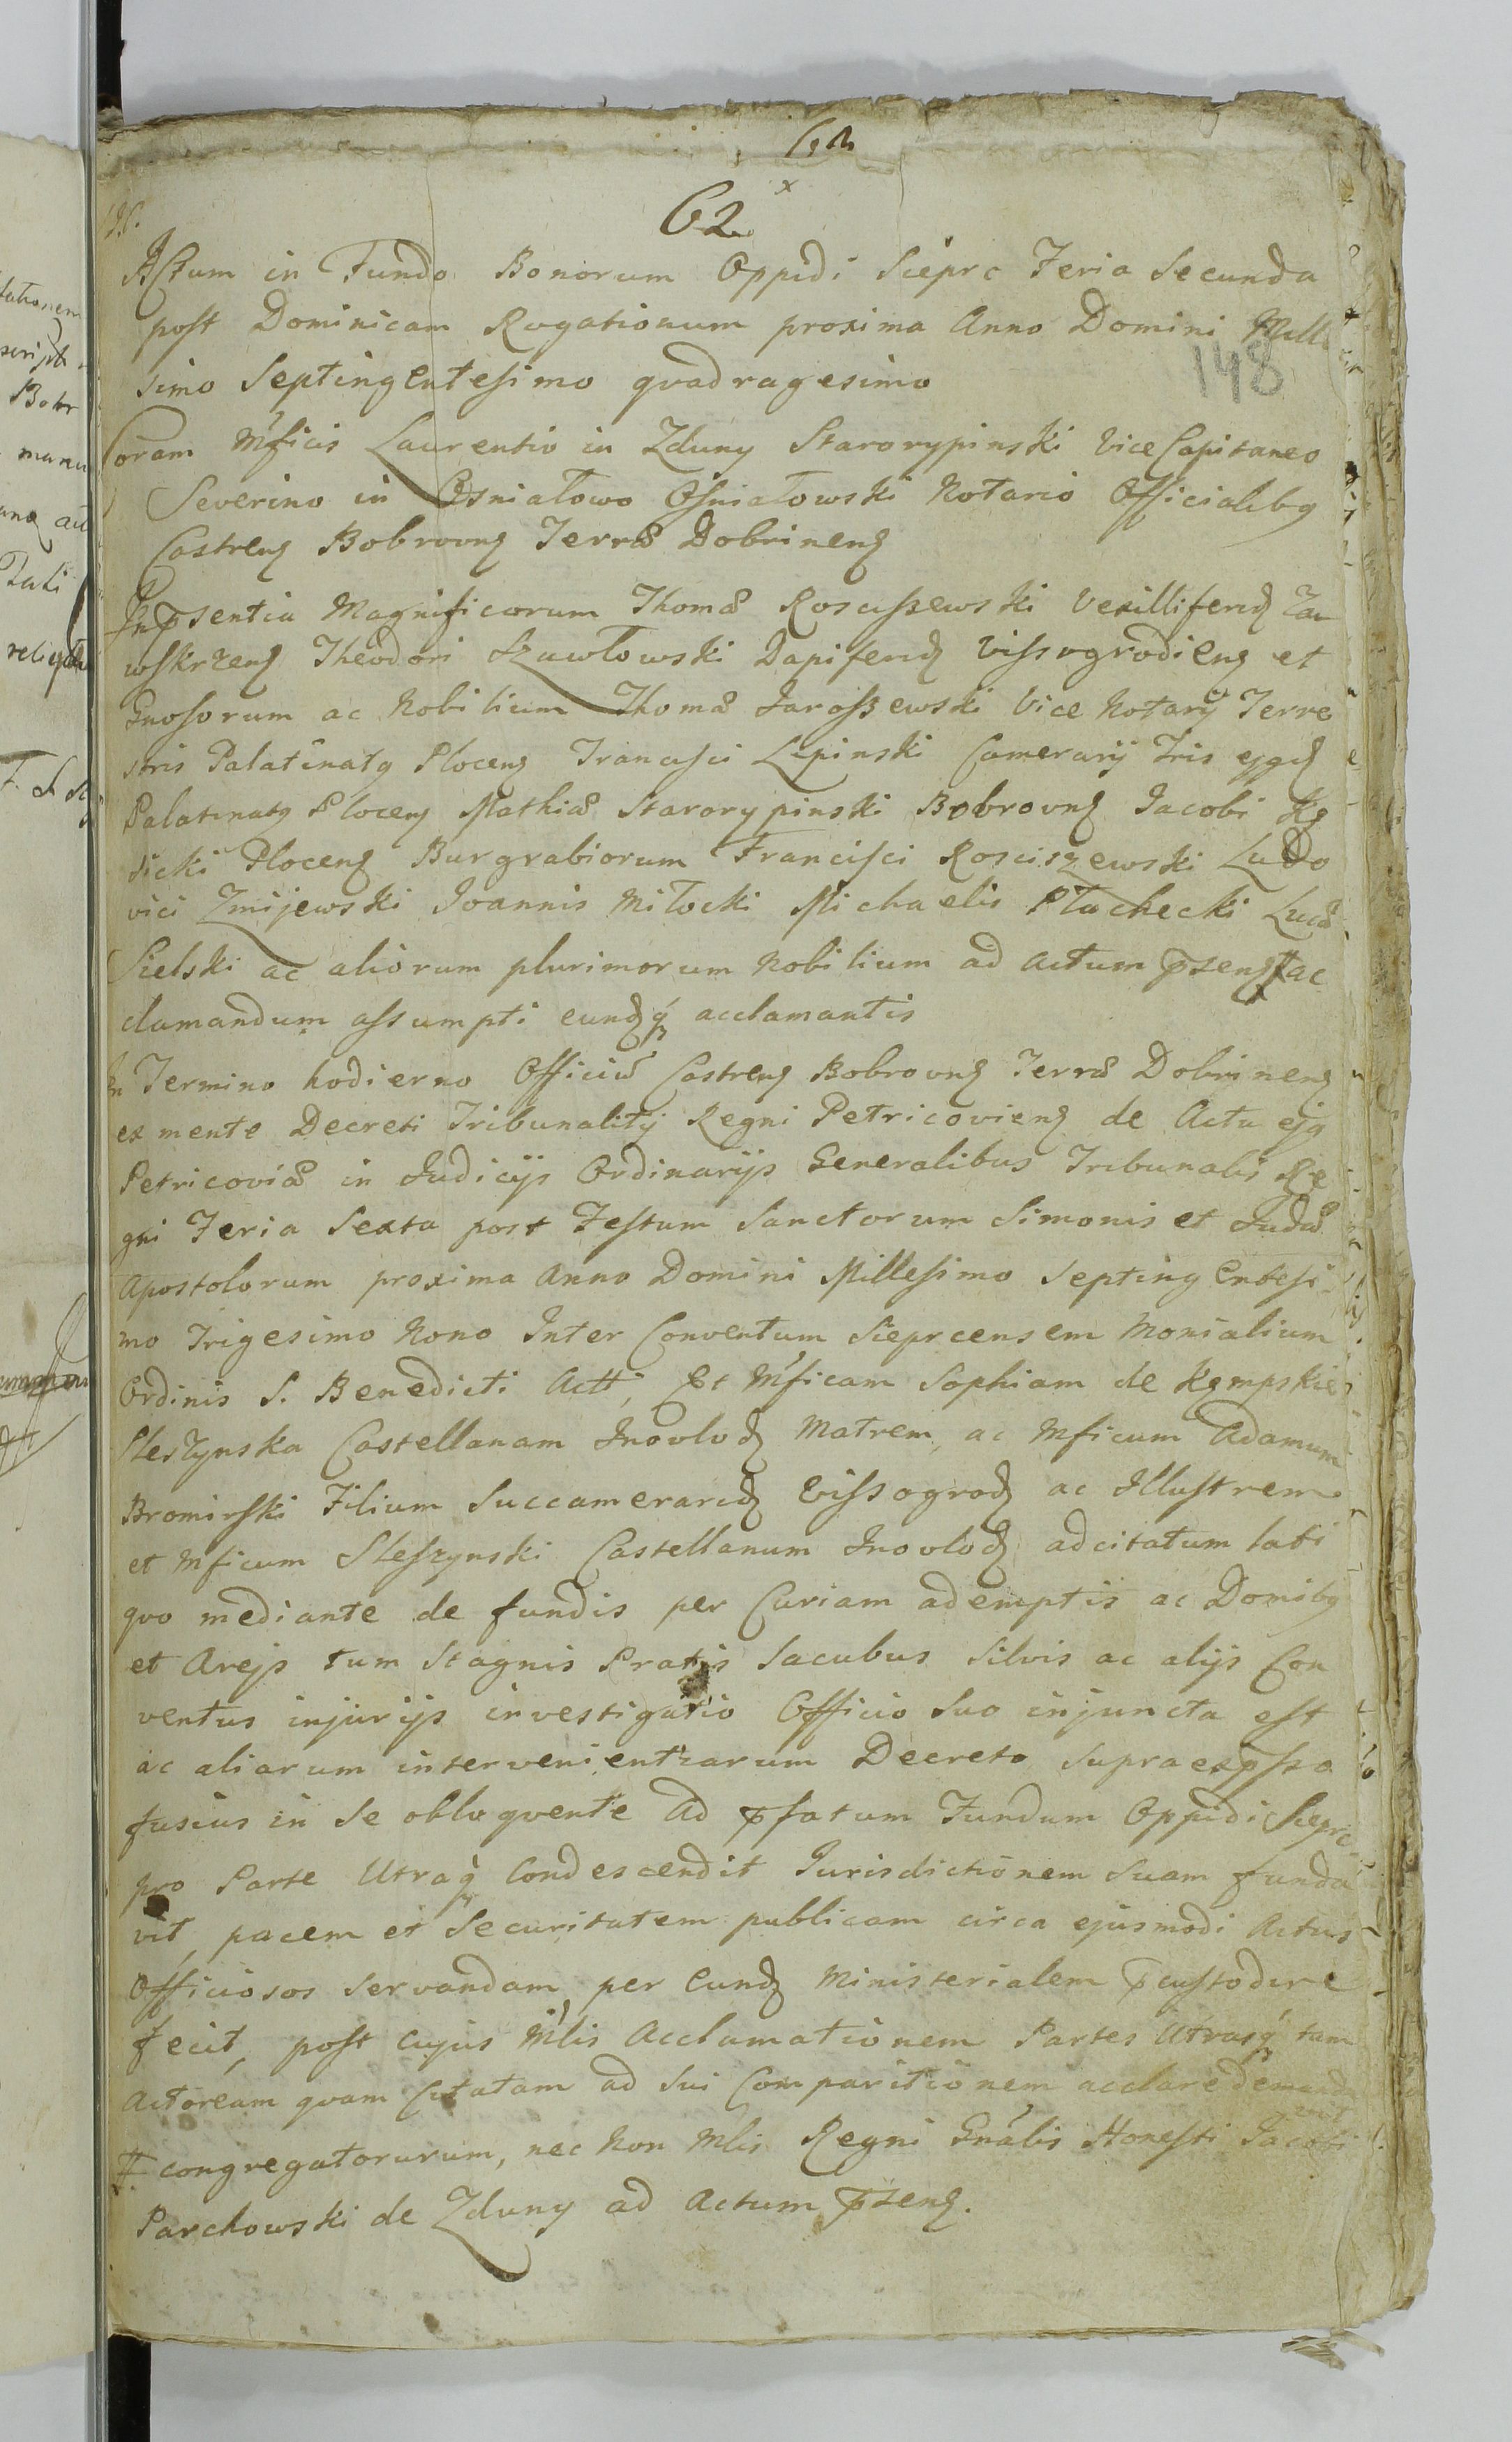 62
Actum in Fundo Bonorum Oppidi Sieprc Feria Secunda
post Dominicam Rogationum proxima Anno Domini Mille
simo Septingentesimo quadragesimo
148
Coram Mficis Laurentio in Zduny Starorypinski Vice Capitaneo
Severino in Osniałowo Osniałowski Notario Officialibq
Castrenq Bobrovnq Terræ Dobrinenq
In pſentia Magnificorum Thomæ Roscissewski Vexilliferid Za
wskrzenq Theodori Szawłowski Dapiferid Vissogrodienq et
Gnosorum ac Nobilium Thomæ Jaroszewski Vice Notarij Terre
stris Palatinatq Plocenq Francisci Lepinski Camerarij Tris ejqd
Palatinatq Plocenq Mathiæ Starorypinski Bobrovnq Jacobi Kę
sicki Plocenq Burgrabiorum Francisci Rosciszewski Ludo
vici Zmijewski Joannis Miłocki Michaelis Płachecki Lucæ
Sielski ac aliorum plurimorum Nobilium ad actum pſenq ‡ ac
clamandum assumpti eundq acclamantis
In Termino hodierno Officiū Castrenq Bobrovnq Terræ Dobrinenq
ex mente Decreti Tribunalitij Regni Petricovienq de Actu ejq
Petricoviæ in Judicijs Ordinarijs Generalibus Tribunalis Re
gni Feria Sexta post Festum Sanctorum Simonis et Judæ
Apostolorum proxima Anno Domini Millesimo Septingentesi
mo Trigesimo Nono Inter Conventum Sieprcensem Monialium
Ordinis S. Benedicti Actt, Et Mficam Sophiam de Kempskie
Sleszynska Castellanam Inovlodq Matrem, ac Mficum Adamum
Bromirski Filium Succamerarid Vissogrodq ac Illustrem
et Mficum Sleszynski Castellanum Inovlodq adcitatum lati
quo mediante de fundis per Curiam ademptis ac Domibq
et Arejs tum Stagnis Pratis Lacubus Silvis ac alijs Con
ventus injurijs investigatio Officio Suo injuncta est
ac aliarum intervenientiarum Decreto supraexpsso
fusius in se obloquente ad pfatum Fundum Oppidi Sieprc
pro Parte Utraq condescendit Jurisdictionem Suam funda
vit, pacem et Securitatem publicam circa ejusmodi Actus
Officiosos servandam per eundq Ministerialem pcustodire
fecit, post cujus Mlis Acclamationem Partes Utrasq tam
Actoream quam Citatam ad sui Comparitionem acclare demanda
vit
‡ congregatorurum, nec non Mlis Regni Gnalis Honesti Jacobi
Parchowski de Zduny ad Actum pſenq.